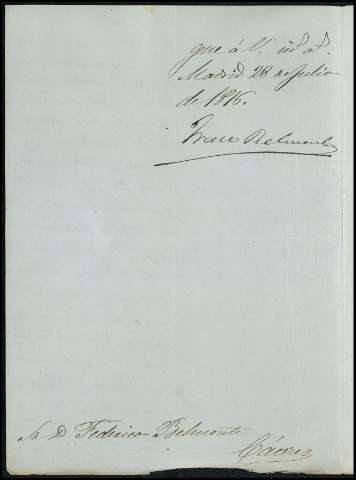 gue á V. m.s a.s
Madrid 28 de Julio
de 1876.
Franc Belmonte
Sr D Federico Belmonte
Cáceres